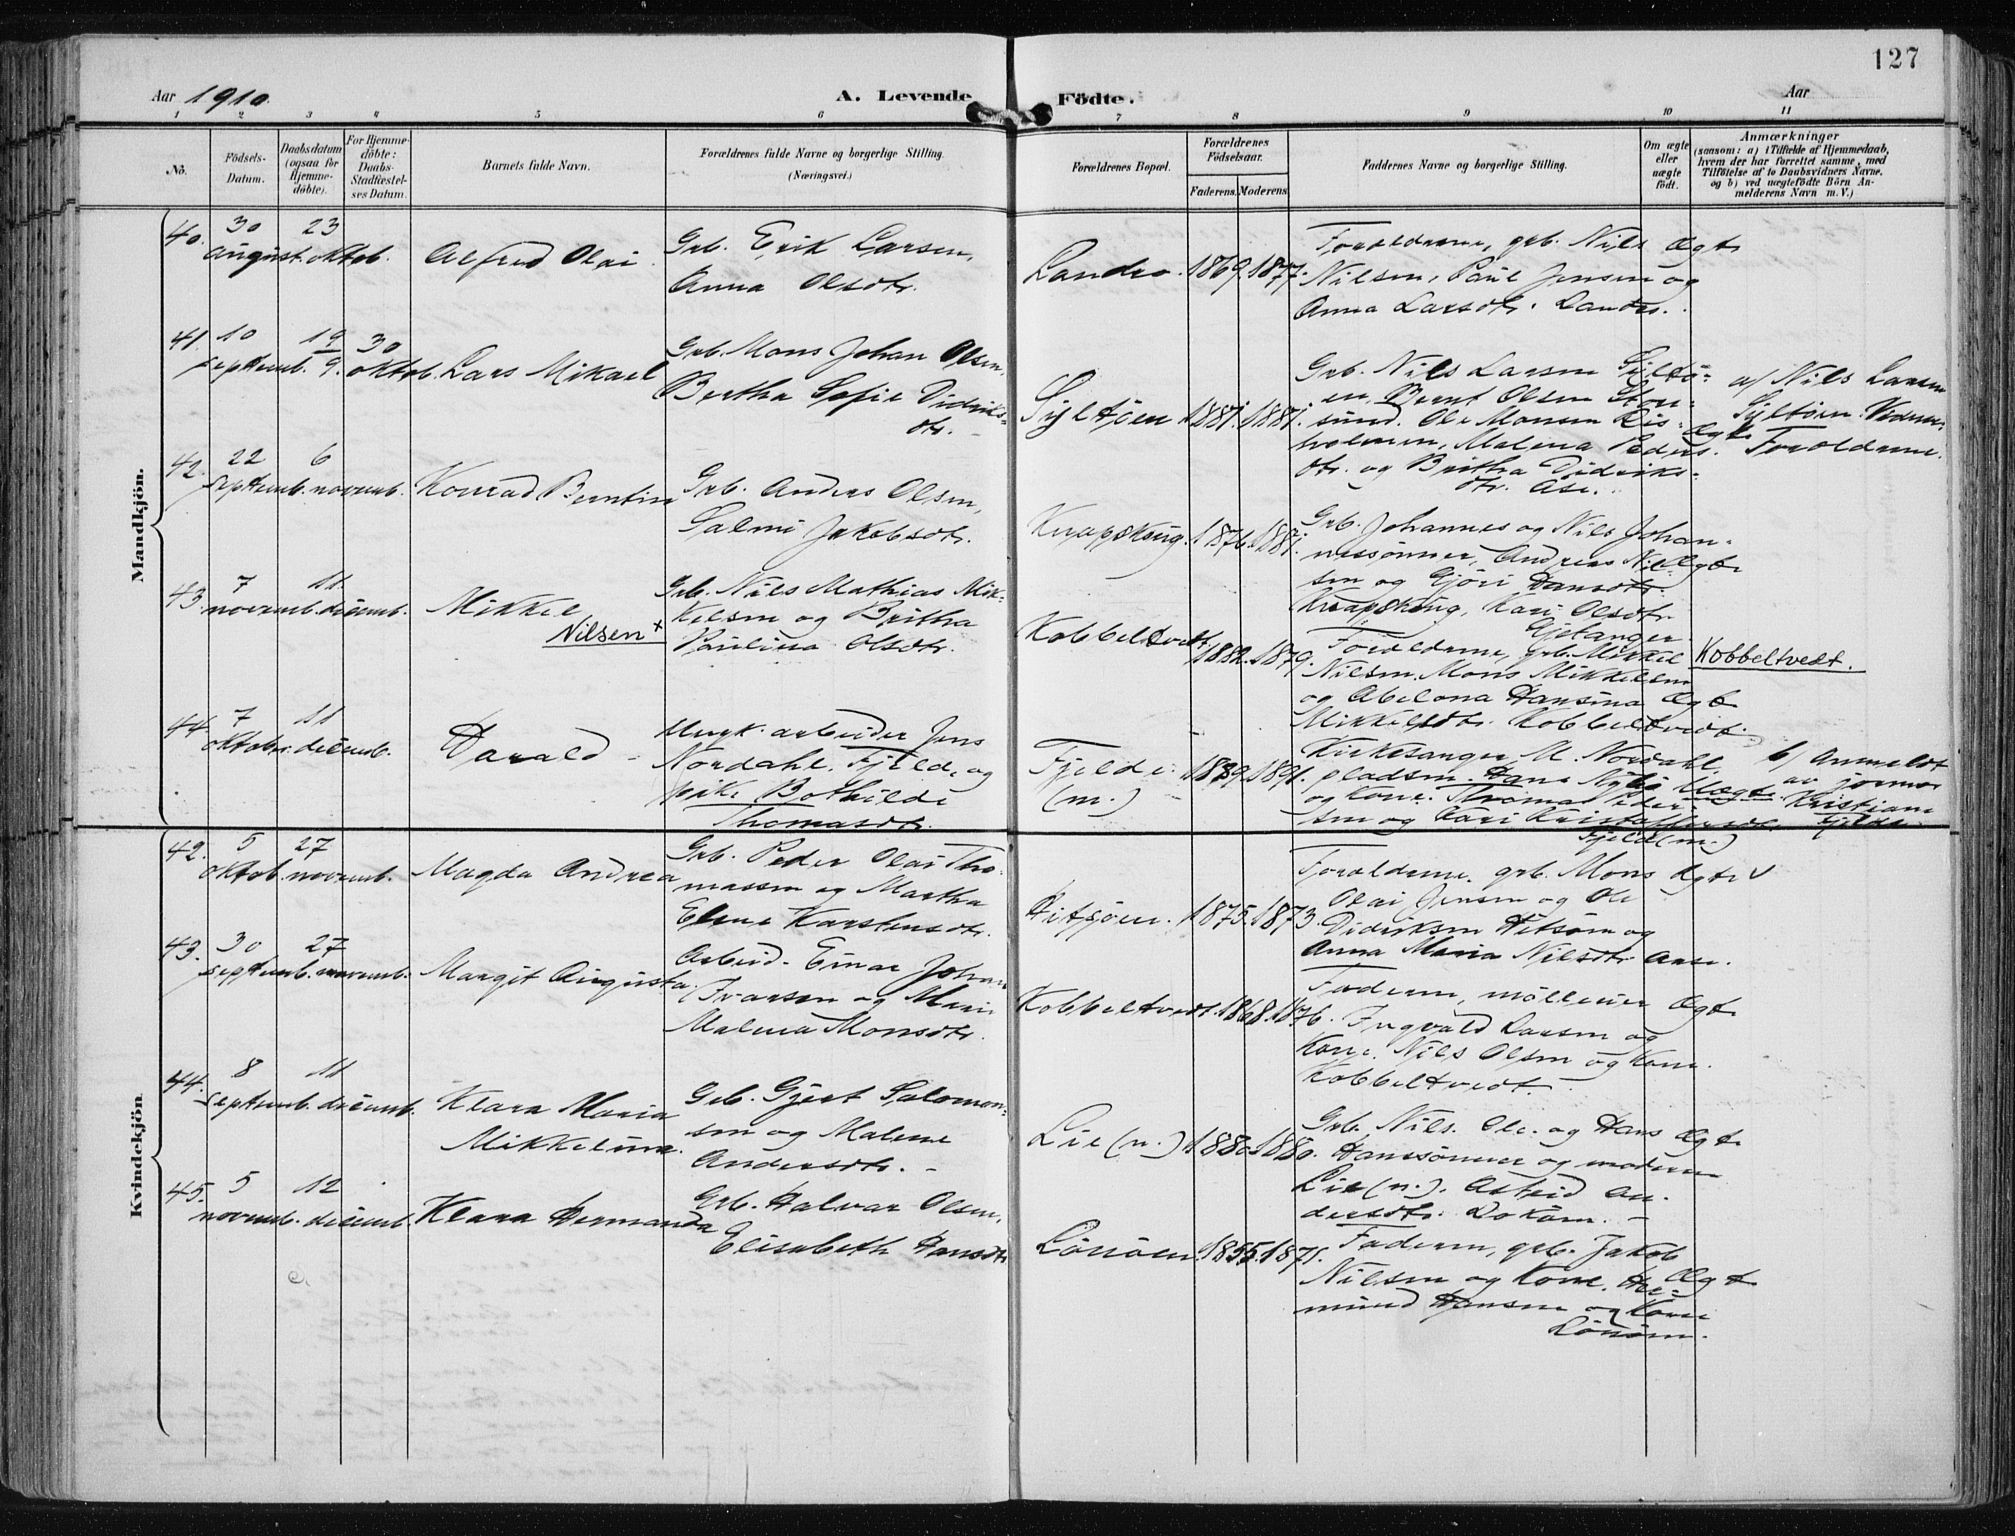 127
Aar 1910.
A. Levende Födte.
Aar
1 2 3 4 5 6 7 8 9 10 11
No.
Födsels-Datum.
Daabsdatum (ogsaa for Hjemme-döbte).
For Hjemme-döbte: Daabs-Stadfæstel-ses Datum.
Barnets fulde Navn.
Forældrenes fulde Navne og borgerlige Stilling. (Næringsvei.)
Forældrenes Bopæl.
Forældrenes Födselsaar.
Faderens. Moderens.
Faddernes Navne og borgerlige Stilling.
Om ægte eller uægte födt.
Anmærkninger
(saasom: a) i Tilfælde af Hjemmedaab,
hvem der har forrettet samme, med
Tilföielse af to Daabsvidners Navne,
og b) ved uægtefödte Börn An-
melderens Navn m. V.)
Mandkjön.
40. 30 august. 23 oktob. Alfred Olai
Grb. Erik Larsen,
Anna Olsdtr.
Landro. 1869. 1877.
Forældrene, grb. Nils
Nilsen, Paul Jensen og
Anna Larsdtr. Landro.
Ægte
41. 10 septemb. 19/9. 30 oktob. Lars Mikael
Grb. Mons Johan Olsen,
Bertha Sofie Didriks-
dtr.
Syltöen 1887. 1887.
Grb. Nils Larsen Syltö-
en, Bernt Olsen
sund. Ole Monsen
holmen, Malena Peders-
dtr. og Britha Didriks-
dtr. Ase.
Ægte
a/ Nils Larsen
Syltöen.
Forældrene.
42. 22 septemb. 6 novemb. Konrad Berntin
Grb. Anders Olsen,
Salmi Jakobsdtr.
Knappskog. 1876. 1881.
Grb. Johannes og Nils Johan-
nessönner, Andreas Nil-
sen og Gjöri Hansdtr.
Knapskog, Kari Olsdtr.
Gjetanger.
Ægte
43. 7 novemb. 11 decemb. Mikkel
Nilsen x
Grb. Nils Mathias Mik-
kelsen og Britha
Paulina Olsdtr.
Kobbeltvedt. 1882. 1879.
Forældrene, grb. Mikkel
Nilsen, Mons Mikkelsen
og Abelona Hansina
Mikkelsdtr. Kobbeltvedt.
Ægte
Kobbeltvedt.
44. 7 oktobr. 11 decemb. Harald
arbeider Jens
Nordahl Fjelde og
pike Bothilde
Thomasdtr.
Fjelde (m.) 1889. 1891.
Kirkesanger M. Nordahl
pladsm. Hans
og Kone. Thomas Peder-
sen og Kari Kristoffersdtr.
Fjeld (m.)
Uægte.
b/ Anmeldt
av jormor
Kristiane
Fjelde.
Kvindekjön.
42. 5 oktob. 27 novemb. Magda Andrea
Grb. Peder Olai Tho-
massen og Martha
Elene Karstensdtr.
Hitsöen. 1875. 1873.
Forældrene. grb. Mons
Olai Jensen og Ole
Didriksen Hitsöen og
Anna Maria Nilsdtr. Aase.
Ægte v
43. 30 septemb. 27 novemb. Margit Augusta.
Arbeid. Einar Johan
Ivarsen og Mari
Malena Monsdtr.
Kobbeltvedt. 1868. 1876.
Faderen, möllerier
Ingvald Larsen og
Kone. Nils Olsen og Kone.
Kobbeltvedt.
Ægte
44. 8 septemb. 11 decemb. Klara Maria
Mikkeline.
Grb. Gjert Salomon-
sen og Malene
Andersdtr. -
Lie (n.) 1880. 1880.
Grb. Nils. Ole. og Hans
Hanssönner og moderen
Lie (n.). Astrid An-
dersdtr. Doköen. -
Ægte
45. 5 novemb. 12 decemb. Klara Hermanda
Grb. Halvar Olsen,
Elisabeth Hansdtr.
Lönöen 1855. 1871.
Faderen, grb. Jakob
Nilsen og Kone.
mund Hansen og Kone
Lönöen.
Ægte